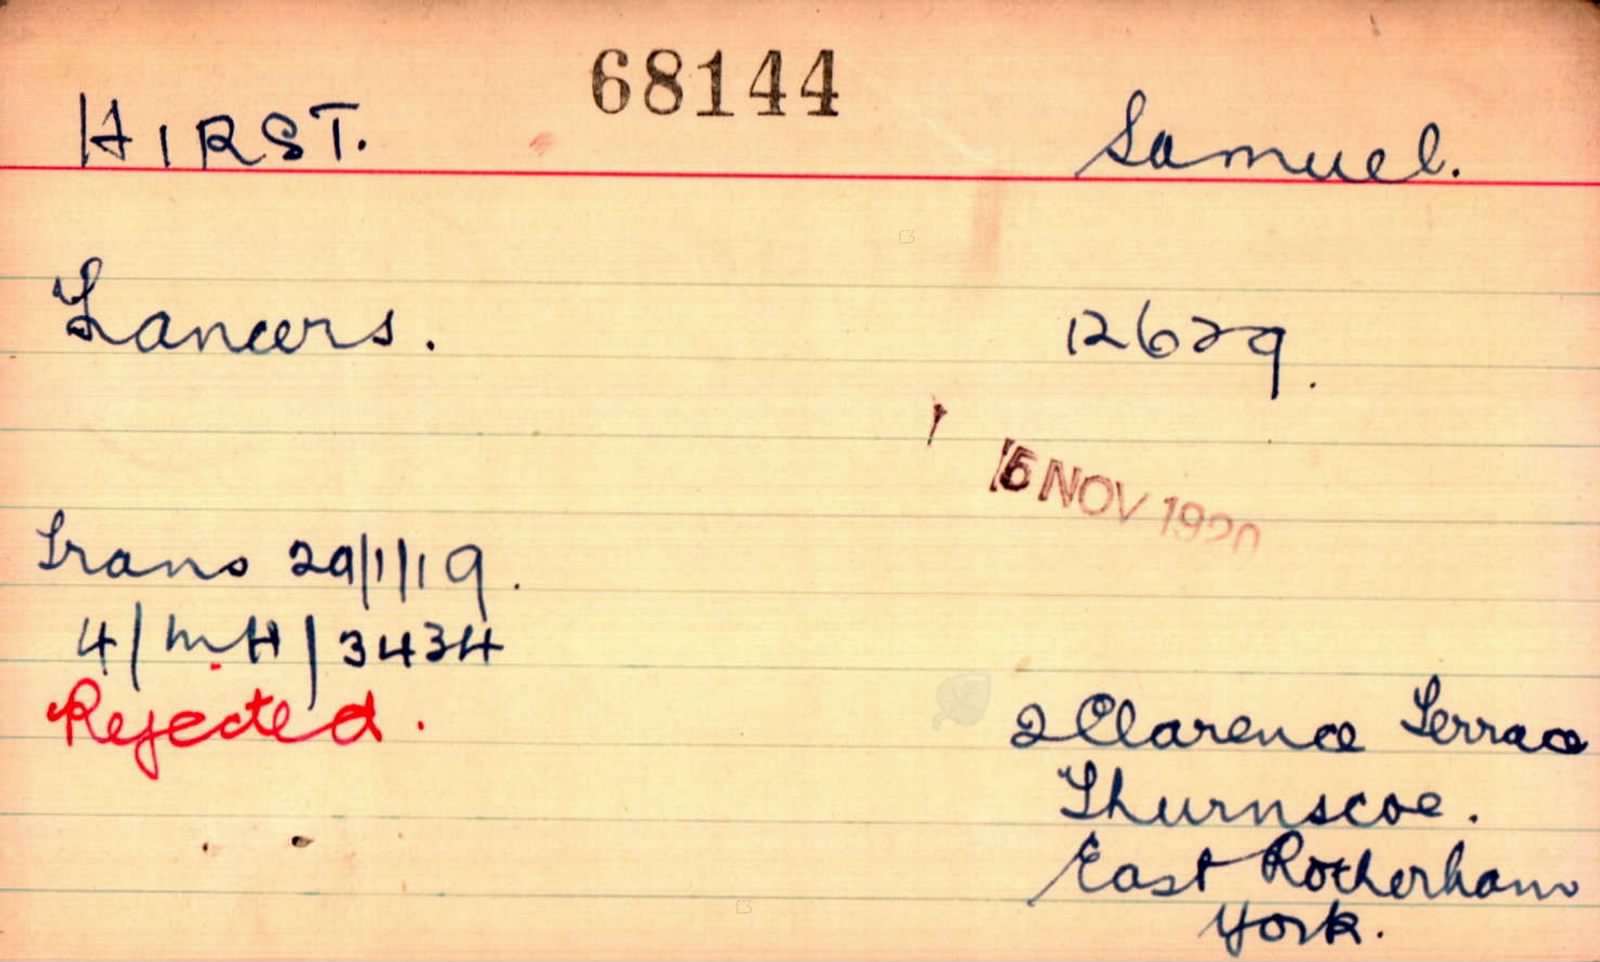 68144
HIRST. Samuel.
Lancers. 12629.
15 NOV 1920
Trans 29/1/19.
4/MH/3434
Rejected.
2 Clarence Terrace
Thurnscoe.
East Rotherham
York.